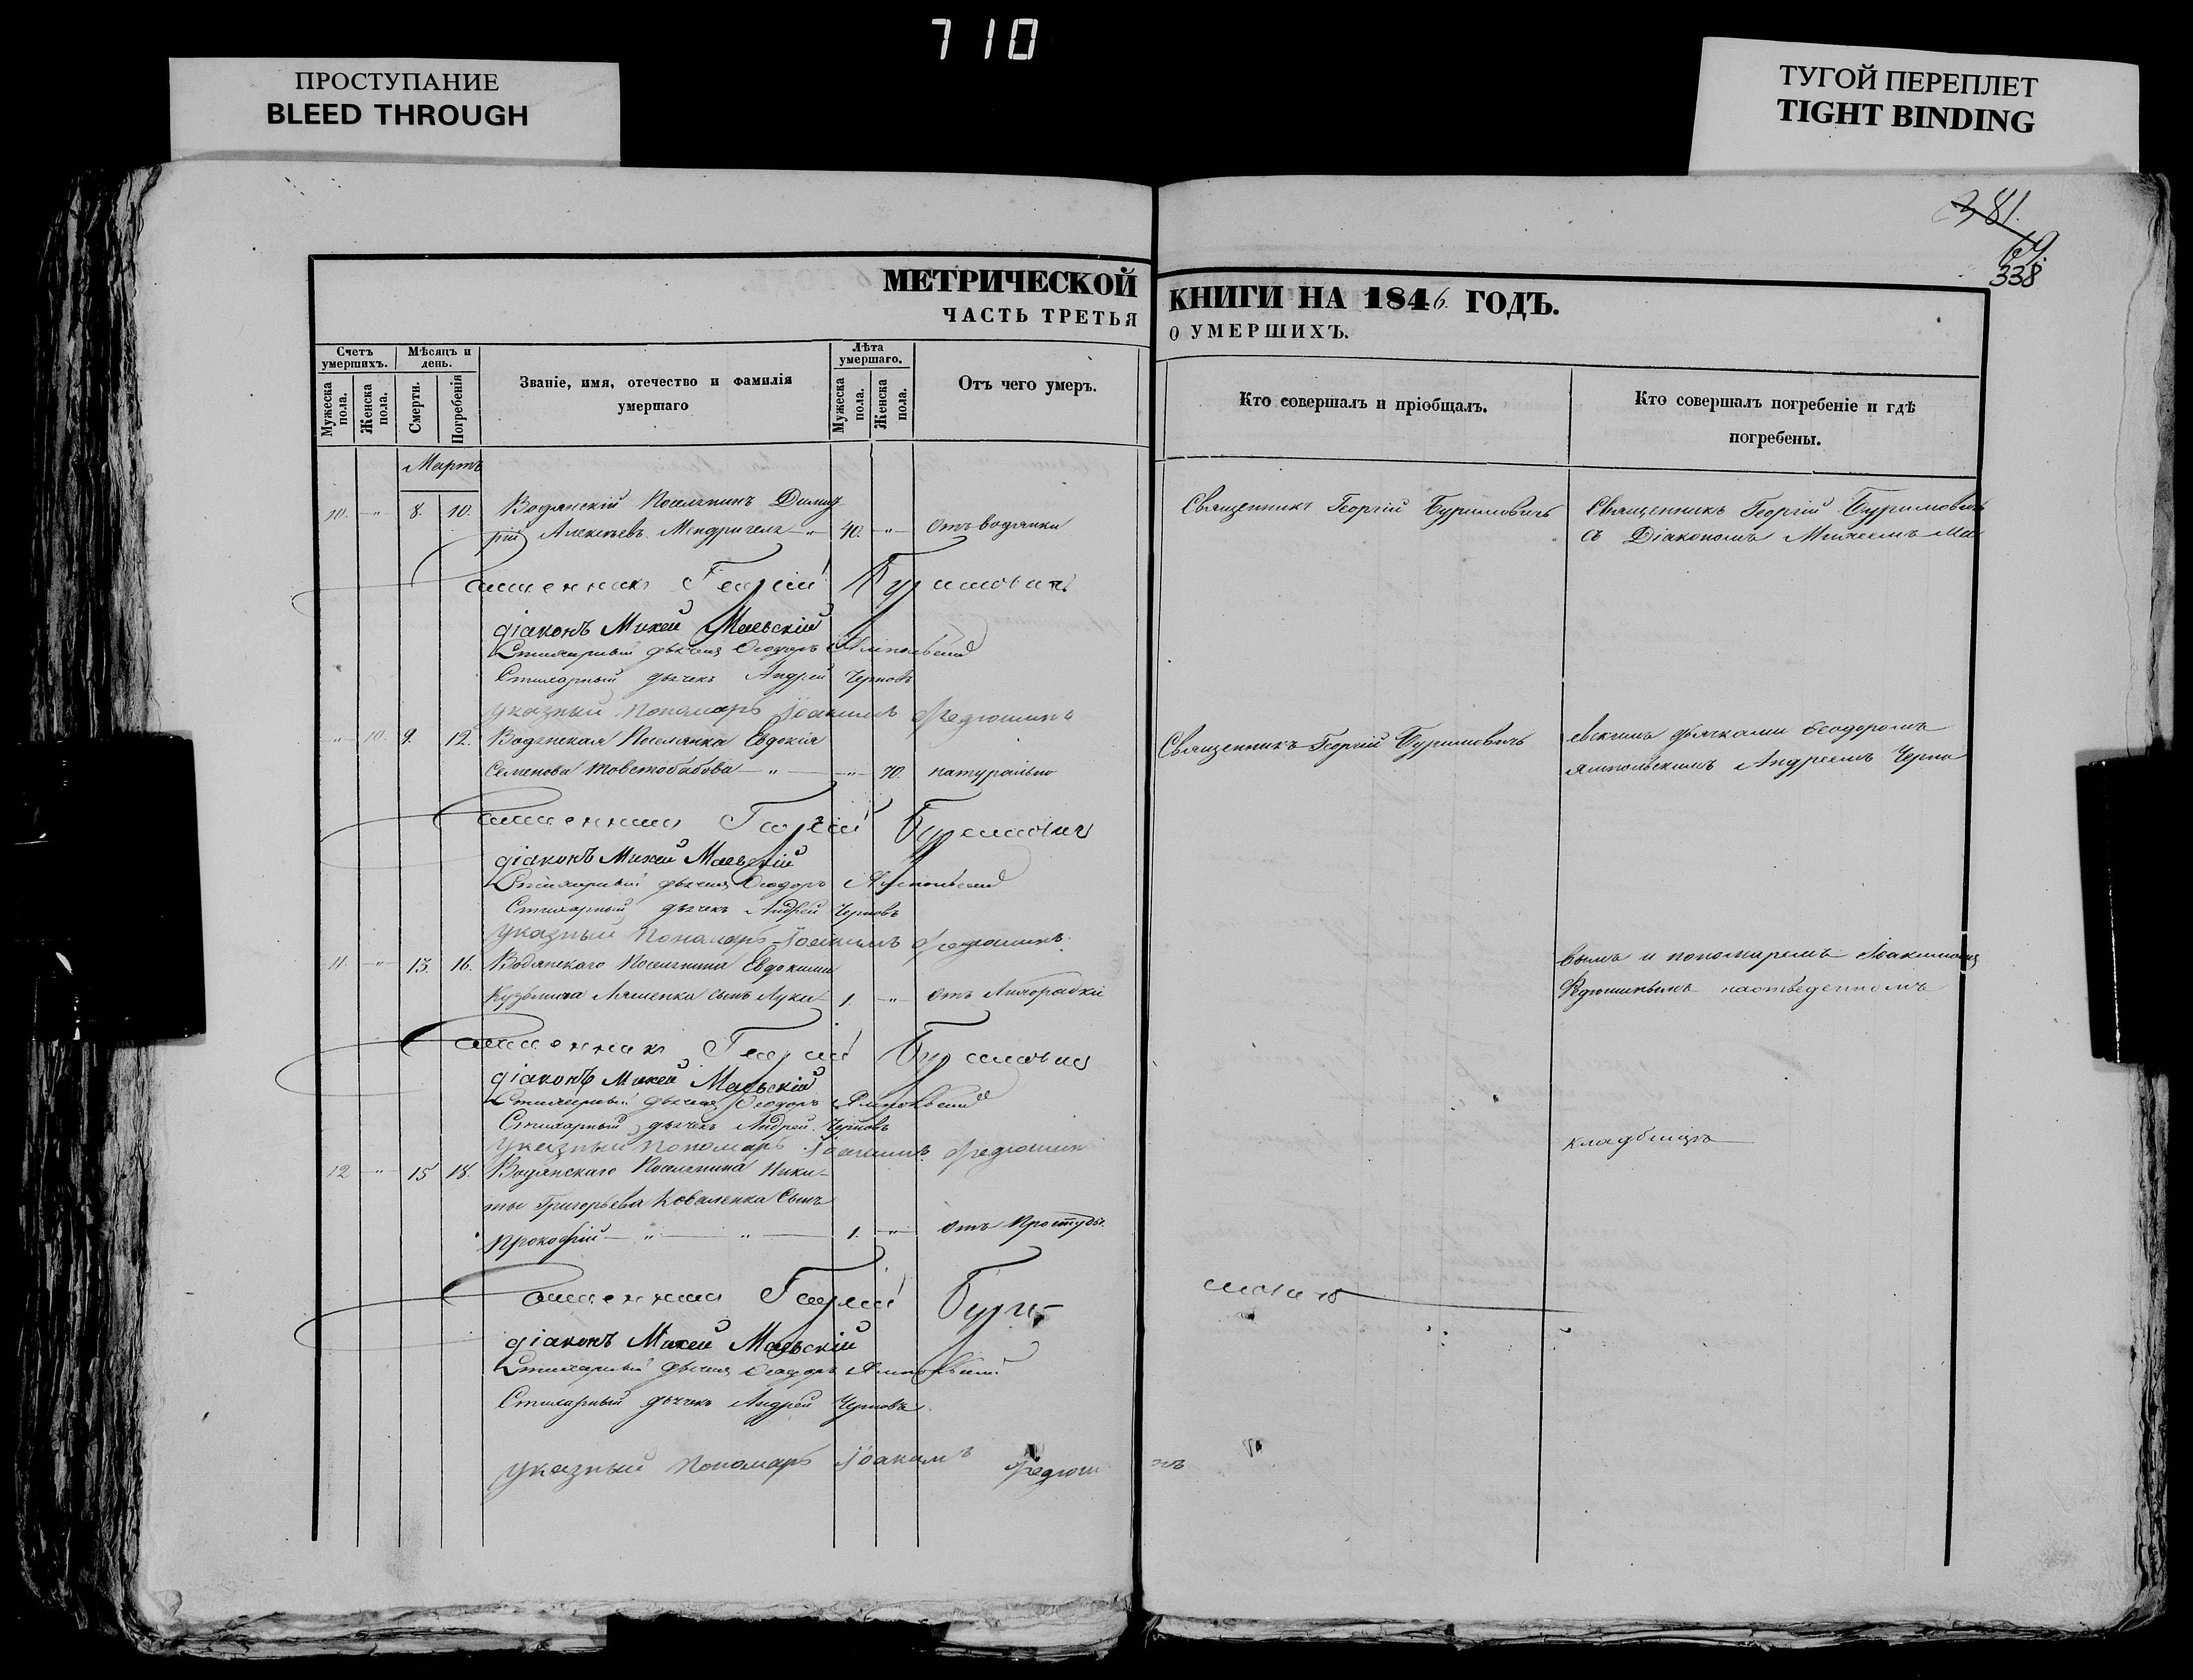 710
ПРОСТУПАНИЕ
BLEED THROUGH
ТУГОЙ ПЕРЕПЛЕТ
TIGHT BINDING
381.
69.
338
МЕТРИЧЕСКОЙ КНИГИ НА 1846. ГОДЪ.
ЧАСТЬ ТРЕТЬЯ О УМЕРШИХЪ.
Счетъ умершихъ.
Мужеска пола.
Женска пола.
Мѣсяцъ и день.
Смерти.
Погребенія
Званіе, имя, отечество и фамилія
умершаго
Лѣта умершаго.
Мужеска пола.
Женска пола.
Отъ чего умеръ.
Кто совершалъ и пріобщалъ.
Кто совершалъ погребеніе и гдѣ
погребены.
Мартъ
10. " 8. 10. Водянскій Поселянинъ Димит
рій Алексѣевъ 40. " отъ водянки
Священникъ Георгій Буримовичъ
Священникъ Георгій Буримовичъ
съ Діакономъ Михеемъ Ма
Священникъ Георгій Буримовичъ
діаконъ Михей Маевскій
Стихарный дьячекъ Ѳеодоръ Ямпольскій
Стихарный дьячекъ Андрей Черновъ
указный пономарь Іоакимъ Федюшинъ
" 10. 9. 12. Водянская Поселянка Евдокія
Семенова Товстобабова " " 70. натурально
Священникъ Георгій Буримовичъ
евскимъ дьячками Ѳеодоромъ
Ямпольскимъ Андреемъ Черно
Священникъ Георгій Буримовичъ
діаконъ Михей Маевскій
Стихарный дьячекъ Ѳеодоръ Ямпольскій
Стихарный дьячекъ Андрей Черновъ
указный пономарь Іоакимъ Федюшинъ
11. " 13. 16. Водянскаго Поселянина Евдокима
Кузьмина Ляшенка сынъ Лука 1. " отъ Лихорадки
вымъ и пономаремъ Іоакимомъ
Федюшинымъ на отведенномъ
Священникъ Георгій Буримовичъ
діаконъ Михей Маевскій
Стихарный дьячекъ Ѳеодоръ Ямпольскій
Стихарный дьячекъ Андрей Черновъ
указный пономарь Іоакимъ Федюшинъ
кладбищѣ
12 " 15 18. Водянскаго Поселянина Ники-
ты Григорьева Коваленка Сынъ
Прокофій " " 1. " отъ Простуды.
Священникъ Георгій Бури-мовичъ
діаконъ Михей Маевскій
Стихарный дьячекъ Ѳеодоръ Ямпольскій
Стихарный дьячекъ Андрей Черновъ
указный пономарь Іоакимъ Федюшинъ